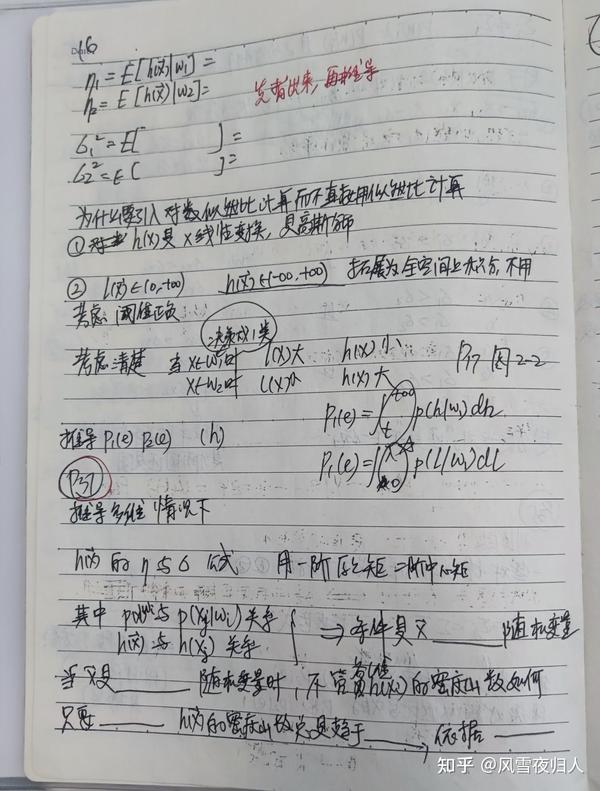 η₁ = E[h(x⃗)|w₁] =
η₂ = E[h(x⃗)|w₂] =
先看出来,再推导
σ₁² = E[ ] =
σ₂² = E[ ] =
为什么要引入对数似然比计算而不直接用似然比计算
① h(x)是x线性变换,是高斯分布
② l(x⃗)∈(0,+∞) h(x⃗)∈(-∞,+∞) 拓展为全空间上 不用
考虑阈值正负
决策成1类
考虑清楚 当x∈w₁时 l(x)大 h(x)小 P37 图2-2
x∈w₂时 l(x)小 h(x)大
P₁(e)=∫ₜ^{+∞} p(h|w₁)dh
推导 P₁(e) P₂(e) (h)
P₁(e)=∫ p(l|w₁)dl
P37
推导多维情况下
h(x⃗)的η与σ公式 用一阶原点矩 二阶中心矩
其中 与p(xⱼ|wᵢ)关系
h(x⃗)与h(xⱼ)关系 ⇒ 条件是x⃗ ____ 随机变量
当x⃗是 ____ 随机变量时,不管 h(xᵢ)的密度函数如何
只要 ____ h(x⃗)的密度函数总是趋于 ____ → 依据 ____
知乎 @风雪夜归人